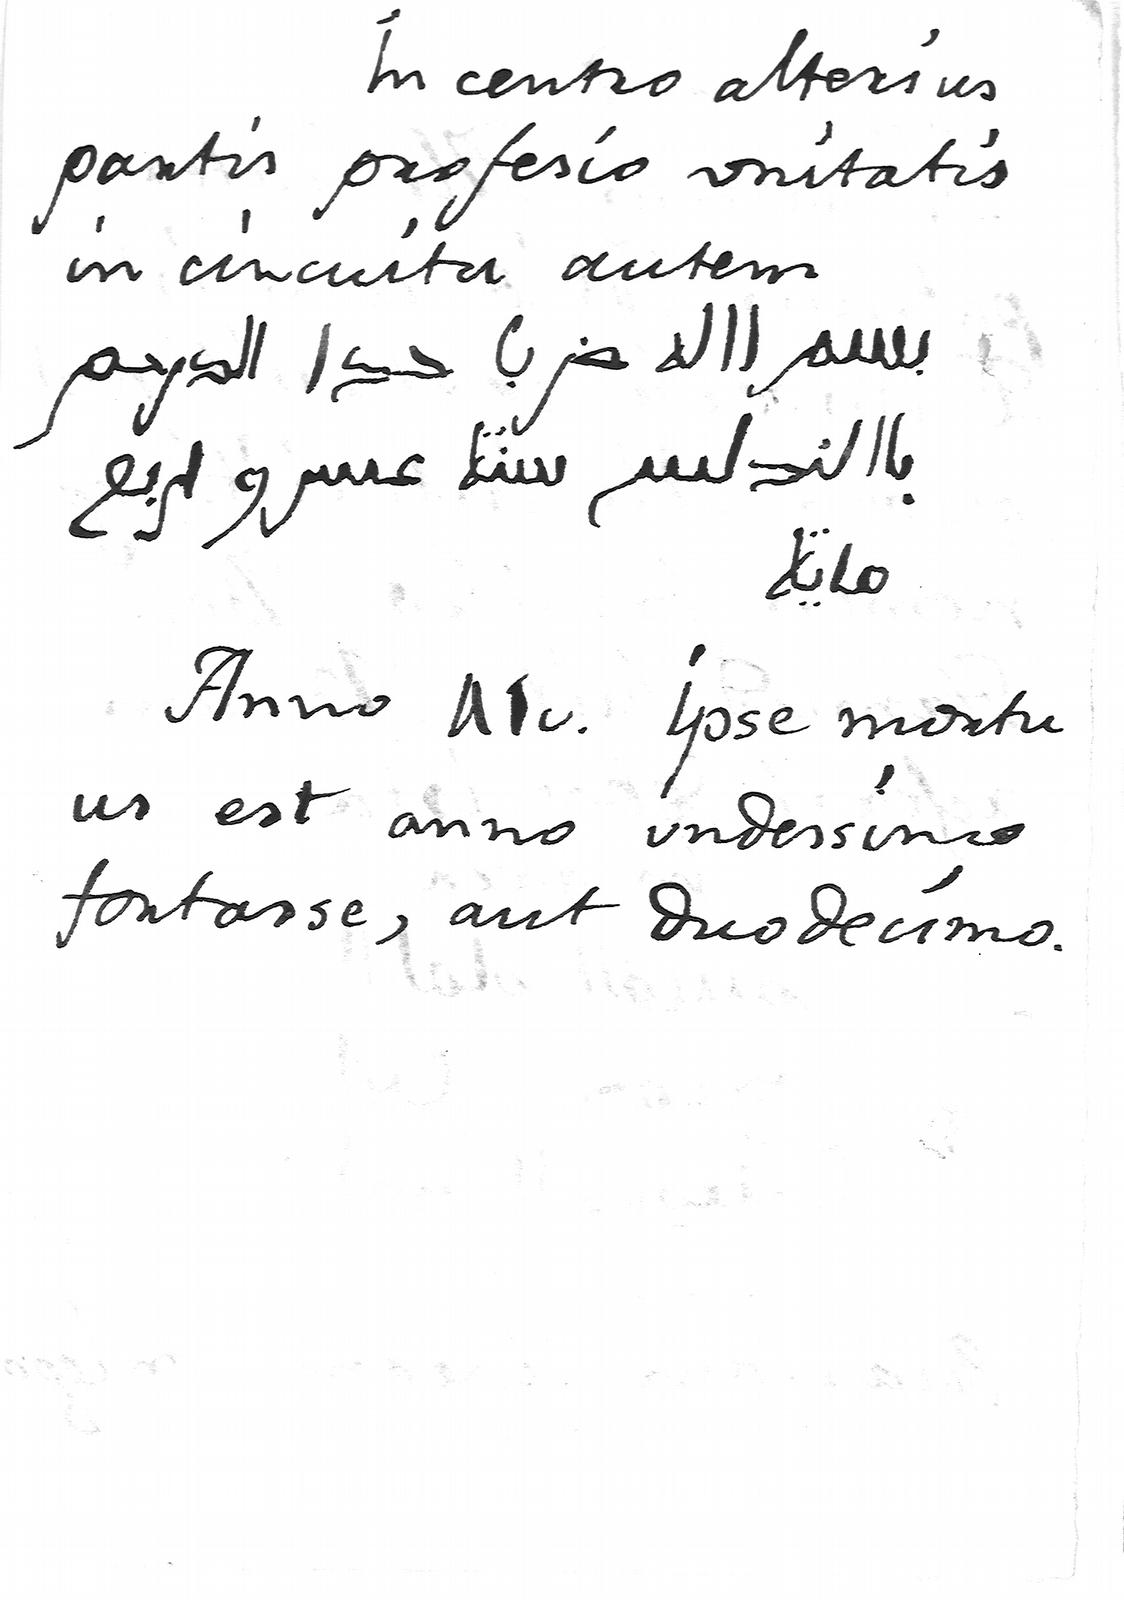 In centro alterius
partis profesio unitatis
in circuitu autem
بسم االله ضرب هدا الدرهم
باالاندلس سنة عسر و اربع
ماية
Anno MIV. Ipse mortu
us est anno undessimo
fortasse, aut duodecimo.